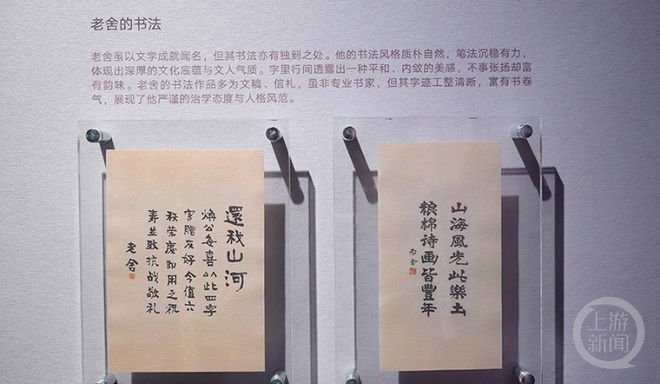 老舍的书法
老舍虽以文学成就闻名，但其书法亦有独到之处。他的书法风格质朴自然，笔法沉稳有力，
体现出深厚的文化底蕴与文人气质。字里行间透露出一种平和、内敛的美感，不事张扬却富
有韵味。老舍的书法作品多为文稿、信札，虽非专业书家，但其字迹工整清晰，富有书卷
气，展现了他严谨的治学态度与人格风范。
還我山河
焕公每喜以此四字
害贈友好今值六
秩荣慶即用之祝
寿並致抗战敬礼
老舍
山海風光此樂土
粮棉诗画皆豐年
老舍
上游新闻